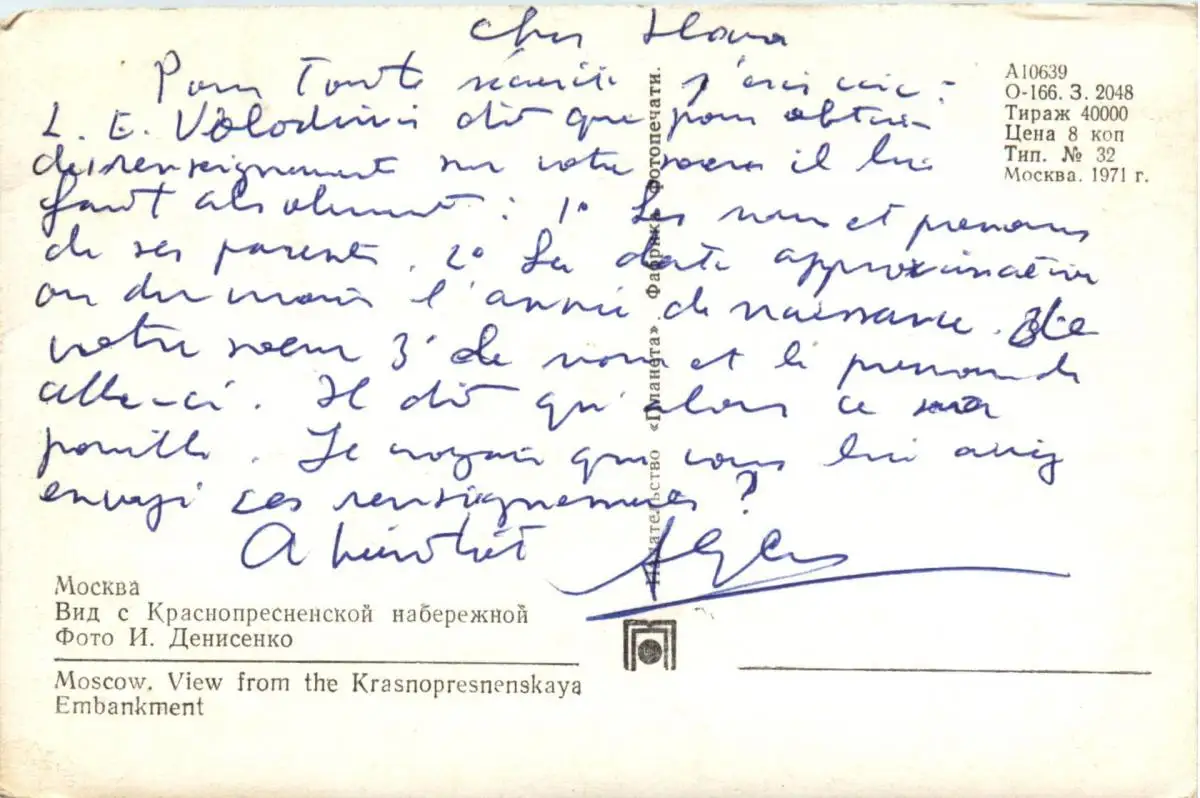 Cher
Pour toute sécurité j'écris ici :
L. E. Volodine dit que pour obtenir
des renseignement sur votre soeur il lui
faut absolument : 1° Les nom et prenoms
de ses parents. 2° La date approximative
ou du moins l'année de naissance. De
votre soeur 3° Le nom et le prenom de
celle-ci. Il dit qu'alors ce sera
possible. Je croyais que vous lui aviez
envoyé ces renseignements ?
A bientôt
А10639
О-166. З. 2048
Тираж 40000
Цена 8 коп
Тип. № 32
Москва. 1971 г.
Издательство «Планета» Фабрика Фотопечати.
Москва
Вид с Краснопресненской набережной
Фото И. Денисенко
Moscow. View from the Krasnopresnenskaya
Embankment